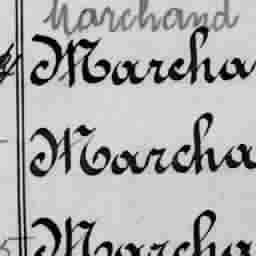 Marchand
Marcha
Marcha
Marcha